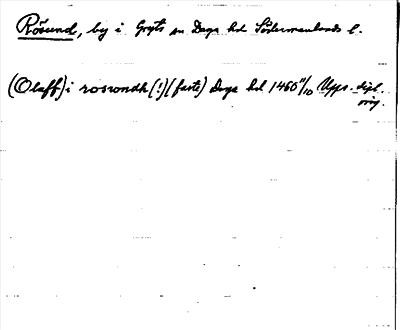 Rösund, by i Gryts sn Daga hd Södermanlands l.
(Olaff) i roswndh (!) (faste) Daga hd 1460 11/10 Upps. dipl. orig.